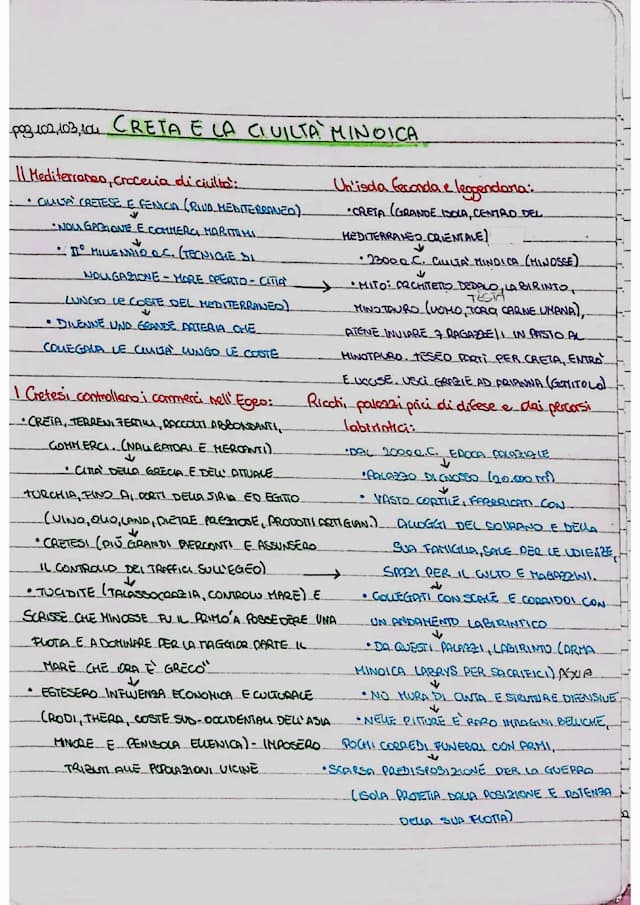 pag.102,103,104 CRETA E LA CIVILTÀ MINOICA
Il Mediterraneo, crocevia di civiltà:
• CIVILTÀ CRETESE E FENICIA (RIVA MEDITERRANEO)
• NAVIGAZIONE E COMMERCI MARITTIMI
• II° MILLENNIO a.C. (TECNICHE DI
NAVIGAZIONE - MARE APERTO - CITTÀ
LUNGO LE COSTE DEL MEDITERRANEO)
• DIVENNE UNA GRANDE ARTERIA CHE
COLLEGAVA LE CIVILTÀ LUNGO LE COSTE
Un'isola feconda e leggendaria:
• CRETA (GRANDE ISOLA, CENTRO DEL
MEDITERRANEO ORIENTALE)
• 2300 a.C. CIVILTÀ MINOICA (MINOSSE)
→ • MITO: ARCHITETO DEDALO, LABIRINTO,
TESTA
MINOTAURO (UOMO, TORO, CARNE UMANA),
ATENE INVIARE 7 RAGAZZE/I IN PASTO AL
MINOTAURO. TESEO PARTÌ PER CRETA, ENTRÒ
E UCCISE. USCÌ GRAZIE AD ARIANNA (GOMITOLO)
I Cretesi controllano i commerci nell'Egeo:
• CRETA, TERRENI FERTILI, RACCOLTI ABBONDANTI,
COMMERCI. (NAVIGATORI E MERCANTI)
• CITTÀ DELLA GRECIA E DELL'ATTUALE
TURCHIA, FINO AI PORTI DELLA SIRIA ED EGITTO
(VINO, OLIO, LANA, PIETRE PREZIOSE, PRODOTTI ARTIGIAN.)
• CRETESI (PIÙ GRANDI MERCANTI E ASSUNSERO
IL CONTROLLO DEI TRAFFICI SULL'EGEO)
• TUCIDITE (TALASSOCRAZIA, CONTROLLO MARE) E
SCRISSE CHE MINOSSE FU IL PRIMO "A POSSEDERE UNA
FLOTTA E A DOMINARE PER LA MAGGIOR PARTE IL
MARE CHE ORA È GRECO"
• ESTESERO INFLUENZA ECONOMICA E CULTURALE
(RODI, THERA, COSTE SUD-OCCIDENTALI DELL'ASIA
MINORE E PENISOLA ELLENICA) - IMPOSERO
TRIBUTI ALLE POPOLAZIONI VICINE
Ricchi palazzi privi di difese e dai percorsi
labirintici:
• DAL 2000 a.C. EPOCA PALAZIALE
• PALAZZO DI CNOSSO (20.000 m²)
• VASTO CORTILE, FABBRICATI CON
ALLOGGI DEL SOVRANO E DELLA
SUA FAMIGLIA, SALE PER LE UDIENZE,
→ SPAZI PER IL CULTO E MAGAZZINI.
• COLLEGATI CON SCALE E CORRIDOI CON
UN ANDAMENTO LABIRINTICO
• DA QUESTI PALAZZI, LABIRINTO (ARMA
MINOICA LABRYS PER SACRIFICI) ASCIA
• NO MURA DI CINTA E STRUTTURE DIFENSIVE
• NELLE PITTURE È RARO IMMAGINI BELLICHE,
POCHI CORREDI FUNEBRI CON ARMI.
• SCARSA PREDISPOSIZIONE PER LA GUERRA
(ISOLA PROTETTA DALLA POSIZIONE E POTENZA
DELLA SUA FLOTTA)